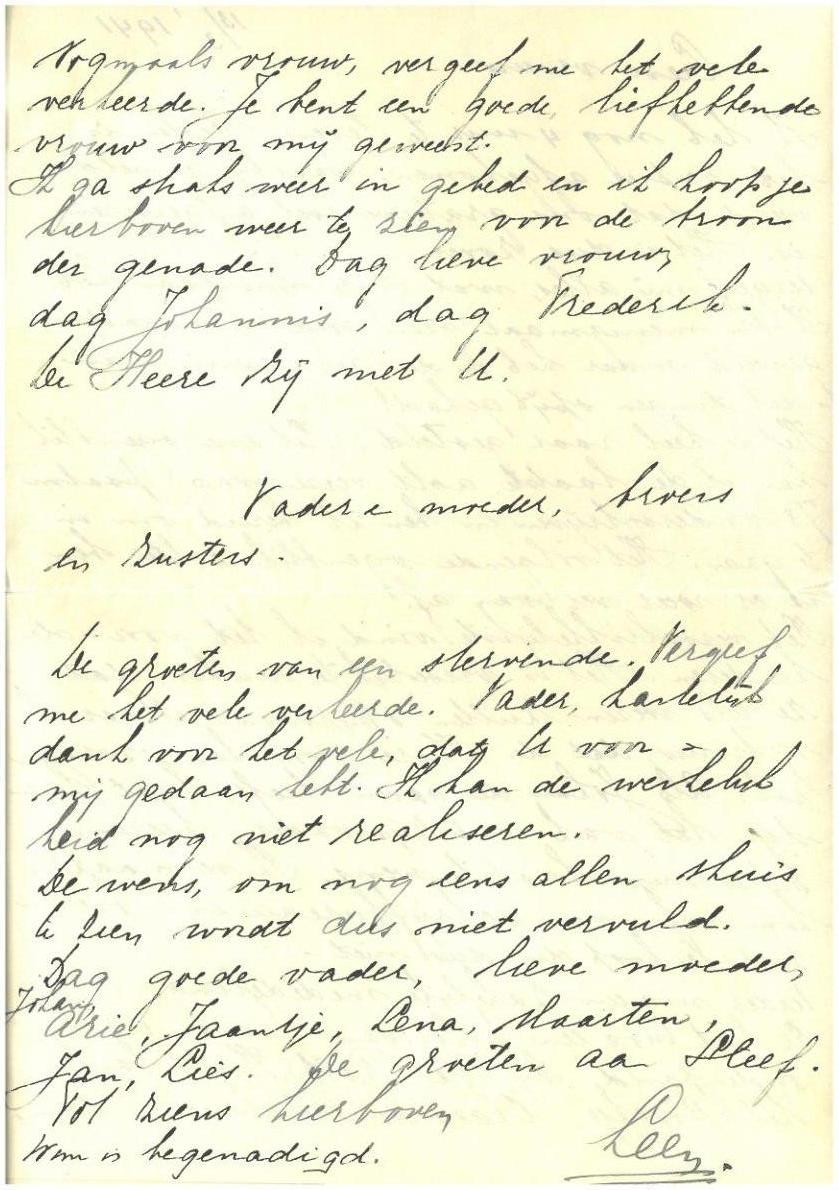 Nogmaals vrouw, vergeef me het vele
verkeerde. Je bent een goede, liefhebbende
vrouw voor mij geweest.
Ik ga straks weer in gebed en ik hoop je
hierboven weer te zien voor de troon
der genade. Dag lieve vrouw,
dag Johannis, dag Frederik.
De Heere zij met U.
Vader e moeder, broers
en zusters.
De groeten van een stervende. Vergeef
me het vele verkeerde. Vader, hartelijk
dank voor het vele, dat U voor
mij gedaan hebt. Ik kan de werkelijk
heid nog niet realiseren.
De wens, om nog eens allen thuis
te zien wordt dus niet vervuld.
Dag goede vader, lieve moeder,
Johan,
Arie, Jaantje, Lena, Maarten,
Jan, Lies. De groeten aa Steef.
Tot ziens hierboven
Wim is begenadigd.
Leen.